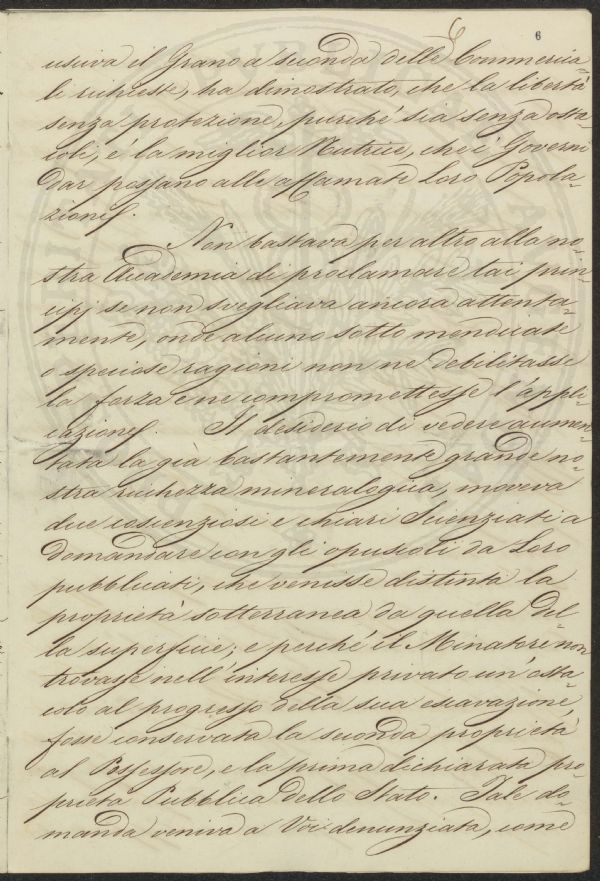 6
usciva il Grano a seconda delle Commercia-
li richieste, ha dimostrato, che la libertà
senza protezione, purché sia senza osta-
coli, è la miglior Nutrice, che i Governi
dar possano alle affamate Loro Popola-
zioni.
Non bastava per altro alla no-
stra Accademia di proclamare tai prin-
cipj se non svegliava ancora attenta-
mente, onde alcuno sotto mendicate
o speciose ragioni non ne debilitasse
la forza e ne compromettesse l'appli-
cazione. Il desiderio di vedere aumen-
tata la già bastantemente grande no-
stra ricchezza mineralogica, moveva
due coscienziosi e chiari Scienziati a
domandare con gli opuscoli da Loro
pubblicati, che venisse distinta la
proprietà sotterranea da quella del-
la superficie; e perché il Minatore non
trovasse nell'interesse privato un'osta-
colo al progresso della sua escavazione,
fosse conservata la seconda proprietà
al Possessore, e la prima dichiarata pro-
prietà Pubblica dello Stato. Tale do-
manda veniva a Voi denunziata, come